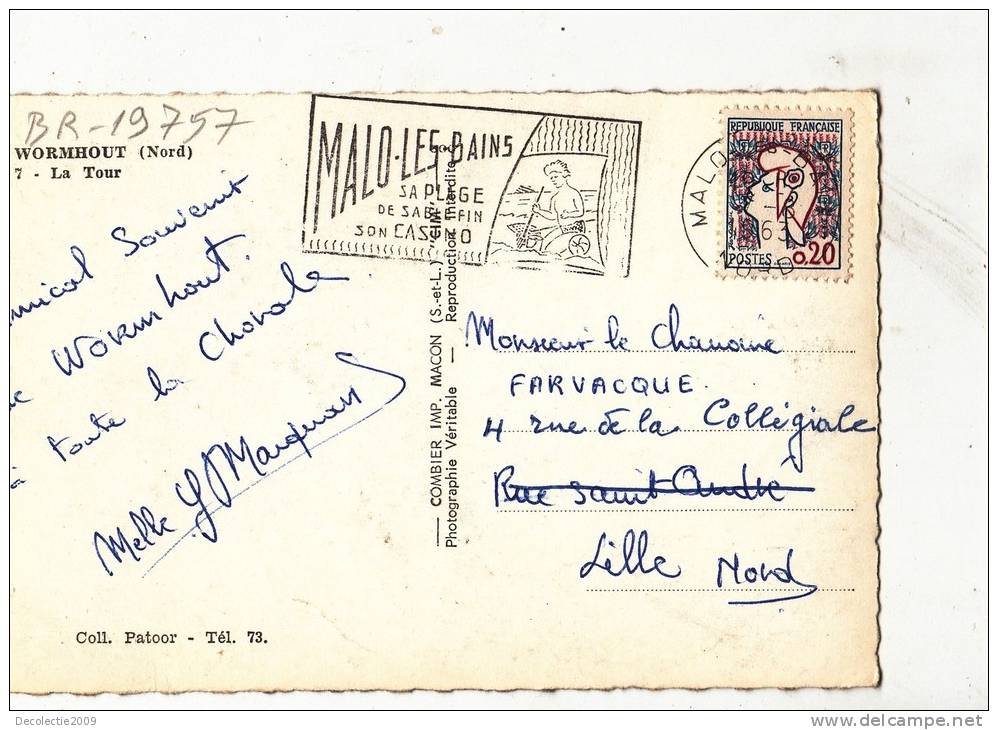 BR-19757
WORMHOUT (Nord)
7 - La Tour
Souvenir
WORMhout.
toute la Chorale
Melle
Coll. Patoor - Tél. 73.
COMBIER IMP. MACON (S.-et-L.) "CIM"
Photographie Véritable — Reproduction Interdite
MALO-LES-BAINS
SA PLAGE
DE SABLE FIN
SON CASINO
MALO
63
NORD
REPUBLIQUE FRANÇAISE
POSTES 0,20
Monsieur le Chanoine
FARVACQUE.
4 rue de la Collégiale
Rue Saint André
Lille Nord
Decolectie2009
delcampe.net